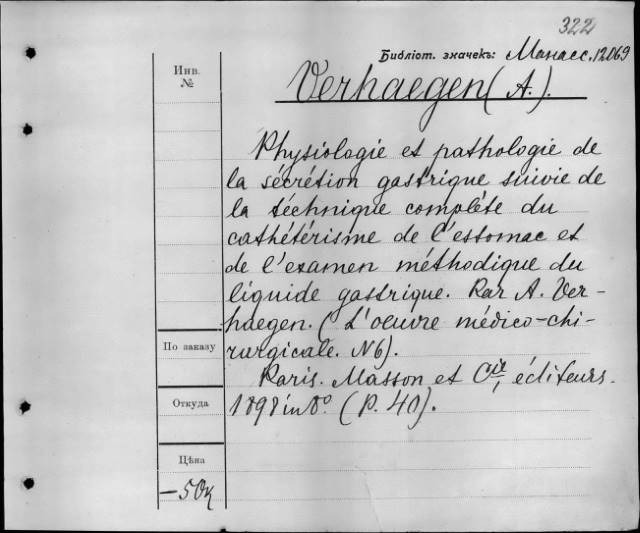 322
Библіот. значекъ: Манасс. 12069
Инв.
№
Verhaegen (A.).
Physiologie et pathologie de
la sécrétion gastrique suivie de
la téchnique complète du
cathétérisme de l'estomac et
de l'examen méthodique du
liquide gastrique. Par A. Ver-
haegen. (L'oeuvre médico-chi-
rurgicale. N6).
Paris. Masson et Cie, éditeurs.
1898 in 8º (P. 40).
По заказу
Откуда
Цѣна
– 50к